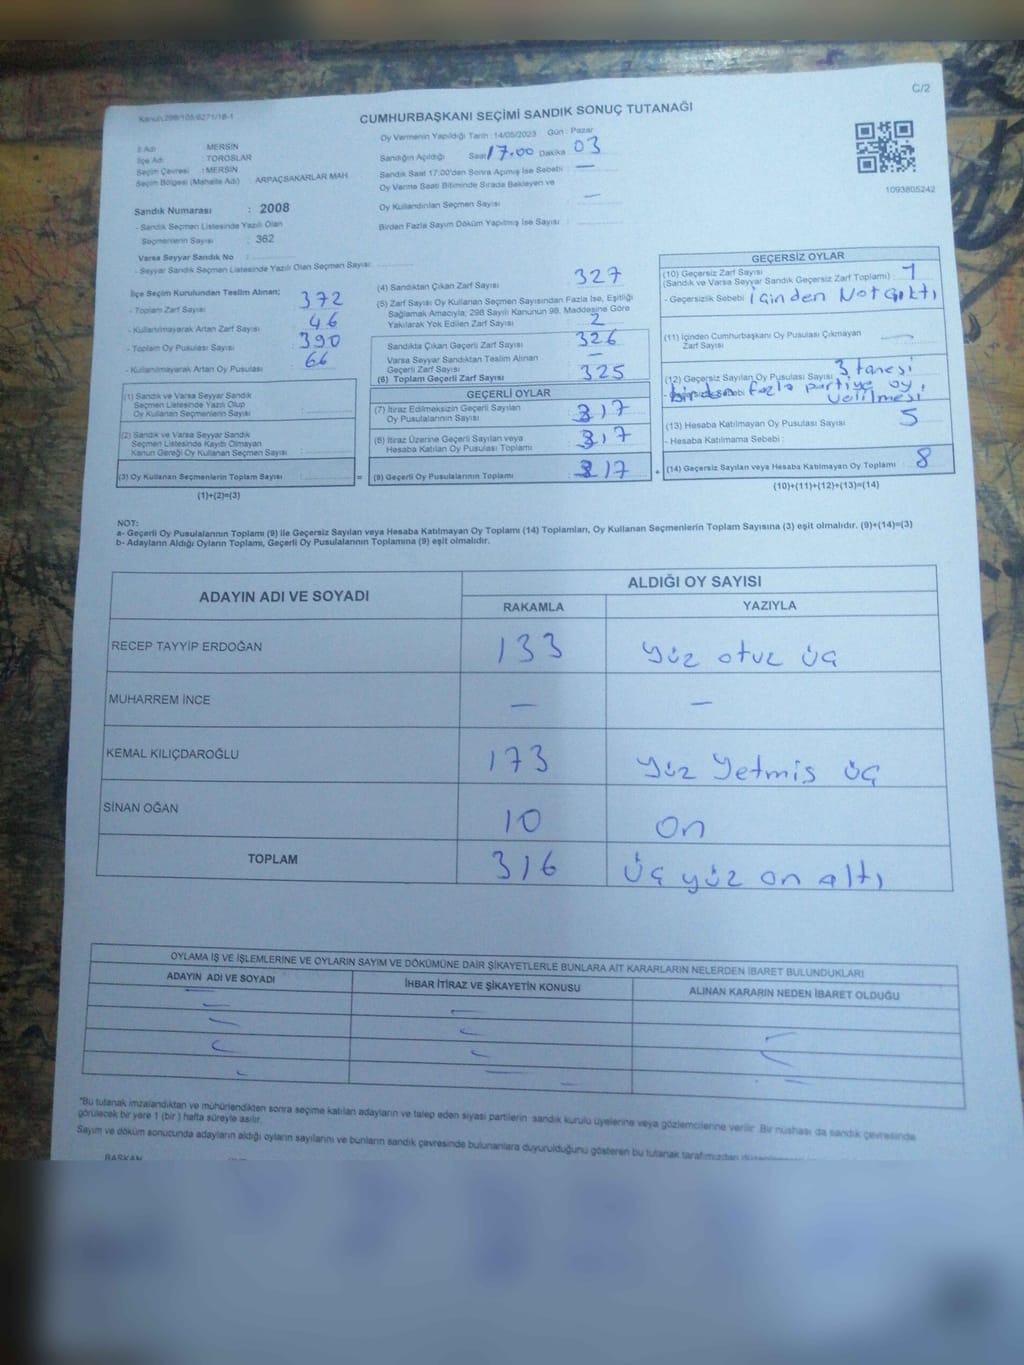 C/2
Kanun:298/105,6271/18-1
CUMHURBAŞKANI SEÇİMİ SANDIK SONUÇ TUTANAĞI
Oy Vermenin Yapıldığı Tarih : 14/05/2023 Gün : Pazar
İl Adı : MERSİN
İlçe Adı : TOROSLAR
Seçim Çevresi : MERSİN
Seçim Bölgesi (Mahalle Adı) : ARPAÇSAKARLAR MAH.
Sandığın Açıldığı Saat 17.00 Dakika 03
Sandık Saat 17:00'den Sonra Açımış İse Sebebi : —
Oy Verme Saati Bitiminde Sırada Bekleyen ve
Oy Kullandırılan Seçmen Sayısı —
Birden Fazla Sayım Döküm Yapılmış İse Sayısı :
1093805242
Sandık Numarası : 2008
- Sandık Seçmen Listesinde Yazılı Olan
Seçmenlerin Sayısı : 362
Varsa Seyyar Sandık No :
- Seyyar Sandık Seçmen Listesinde Yazılı Olan Seçmen Sayısı:
İlçe Seçim Kurulundan Teslim Alınan;
- Toplam Zarf Sayısı : 372
- Kullanılmayarak Artan Zarf Sayısı : 46
- Toplam Oy Pusulası Sayısı : 390
- Kullanılmayarak Artan Oy Pusulası : 66
(1) Sandık ve Varsa Seyyar Sandık
Seçmen Listesinde Yazılı Olup
Oy Kullanan Seçmenlerin Sayısı :
(2) Sandık ve Varsa Seyyar Sandık
Seçmen Listesinde Kayıtlı Olmayan
Kanun Gereği Oy Kullanan Seçmen Sayısı :
(3) Oy Kullanan Seçmenlerin Toplam Sayısı :
(1)+(2)=(3)
(4) Sandıktan Çıkan Zarf Sayısı : 327
(5) Zarf Sayısı Oy Kullanan Seçmen Sayısından Fazla İse, Eşitliği
Sağlamak Amacıyla, 298 Sayılı Kanunun 98. Maddesine Göre
Yakılarak Yok Edilen Zarf Sayısı : 2
Sandıkta Çıkan Geçerli Zarf Sayısı : 326
Varsa Seyyar Sandıktan Teslim Alınan
Geçerli Zarf Sayısı : —
(6) Toplam Geçerli Zarf Sayısı : 325
GEÇERLİ OYLAR
(7) İtiraz Edilmeksizin Geçerli Sayılan
Oy Pusulalarının Sayısı : 317
(8) İtiraz Üzerine Geçerli Sayılan veya
Hesaba Katılan Oy Pusulası Toplamı : 317
= (9) Geçerli Oy Pusulalarının Toplamı : 317 +
GEÇERSİZ OYLAR
(10) Geçersiz Zarf Sayısı
(Sandık ve Varsa Seyyar Sandık Geçersiz Zarf Toplamı) : 1
- Geçersizlik Sebebi : içinden Not çıktı
(11) İçinden Cumhurbaşkanı Oy Pusulası Çıkmayan
Zarf Sayısı : —
(12) Geçersiz Sayılan Oy Pusulası Sayısı : 3 tanesi
- Geçersizlik Sebebi birden fazla partiye oy
verilmesi
(13) Hesaba Katılmayan Oy Pusulası Sayısı : 5
- Hesaba Katılmama Sebebi :
(14) Geçersiz Sayılan veya Hesaba Katılmayan Oy Toplamı : 8
(10)+(11)+(12)+(13)=(14)
NOT:
a- Geçerli Oy Pusulalarının Toplamı (9) ile Geçersiz Sayılan veya Hesaba Katılmayan Oy Toplamı (14) Toplamları, Oy Kullanan Seçmenlerin Toplam Sayısına (3) eşit olmalıdır. (9)+(14)=(3)
b- Adayların Aldığı Oyların Toplamı, Geçerli Oy Pusulalarının Toplamına (9) eşit olmalıdır.
ADAYIN ADI VE SOYADI ALDIĞI OY SAYISI
RAKAMLA YAZIYLA
RECEP TAYYİP ERDOĞAN 133 yüz otuz üç
MUHARREM İNCE — —
KEMAL KILIÇDAROĞLU 173 yüz yetmis üç
SİNAN OĞAN 10 On
TOPLAM 316 üç yüz on altı
OYLAMA İŞ VE İŞLEMLERİNE VE OYLARIN SAYIM VE DÖKÜMÜNE DAİR ŞİKAYETLERLE BUNLARA AİT KARARLARIN NELERDEN İBARET BULUNDUKLARI
ADAYIN ADI VE SOYADI İHBAR İTİRAZ VE ŞİKAYETİN KONUSU ALINAN KARARIN NEDEN İBARET OLDUĞU
*Bu tutanak imzalandıktan ve mühürlendikten sonra seçime katılan adayların ve talep eden siyasi partilerin sandık kurulu üyelerine veya gözlemcilerine verilir. Bir nüshası da sandık çevresinde
görülecek bir yere 1 (bir) hafta süreyle asılır.
Sayım ve döküm sonucunda adayların aldığı oyların sayılarını ve bunların sandık çevresinde bulunanlara duyurulduğunu gösteren bu tutanak tarafımızdan
BAŞKAN